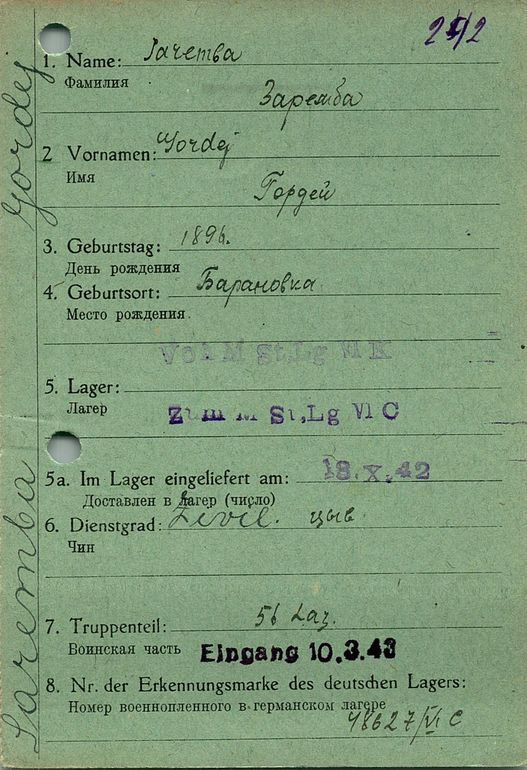 212
1. Name: Zaremba
Фамилия
Заремба
2 Vornamen: Gordej
Имя
Гордей
3. Geburtstag: 1896.
День рождения
4. Geburtsort: Барановка
Место рождения.
Vom M St.Lg VI K
5. Lager:
Лагер
Zum M St.Lg VI C
5a. Im Lager eingeliefert am: 18.X.42
Доставлен в лагер (число)
6. Dienstgrad: Zivil. цыв.
Чин
7. Truppenteil: 56 Laz.
Воинская часть Eingang 10.3.43
8. Nr. der Erkennungsmarke des deutschen Lagers:
Номер военнопленного в германском лагере
48627/VI C
Saremba Gordej